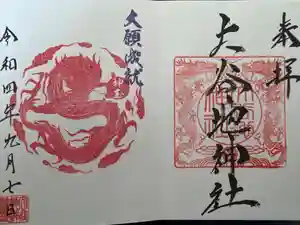 奉拝
大谷地神社
大願成就
令和四年九月七日